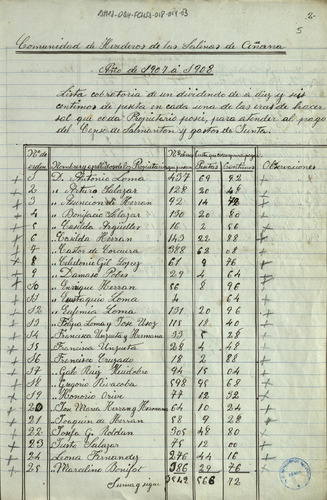 AHAA-DAH-FCHSA-018-014-03
2-
5
Comunidad de Herederos de las Salinas de Añana
Año de 1907 á 1908
Lista cobratoria de un dividendo de á diez y seis
centimos de peseta en cada una de las eras de hacer
sal que cada Propietario posée, para atender al pago
del Censo de Salmanton y gastos de Junta.
Nº de orden Nombres y apellidos de los Propietarios Nº de eras Pesetas Centimos Observaciones
1 D. Antonio Loma 437 69 92
2 " Arturo Salazar 128 20 48
3 " Asuncion de Herran 92 14 72
4 " Bonifacio Salazar 130 20 80
5 " Casilda Argüelles 16 2 56
6 " Casilda Herran 143 22 88
7 " Castor de Corcuera 388 62 08
8 " Celedonio Gil Lopez 61 9 76
9 " Damaso Pobes 29 4 64
10 " Enrique Herran 56 8 96
11 " Eustaquio Loma 4 " 64
12 " Eufemia Loma 131 20 96
13 " Felipa Loma y Jose Usoz 115 18 40
14 " Francisca Unzueta y Hermana 33 5 28
15 " Francisca Unzueta 28 4 48
16 " Francisco Cruzado 18 2 88
17 " Galo Ruiz Huidobro 94 15 04
18 " Grgorio Hiracoba 598 95 68
19 " Honorio Orive 77 12 32
20 " Jose Maria Herran y Hermana 64 10 24
21 " Joaquin de Herran 58 9 28
22 " Josefa Gz Roldan 305 48 80
23 " Justo Salazar 75 12 00
24 " Liona Fernandez 276 44 16
25 " Marcelino Bonifat 186 29 76
Suma y sigue 3542 566 72